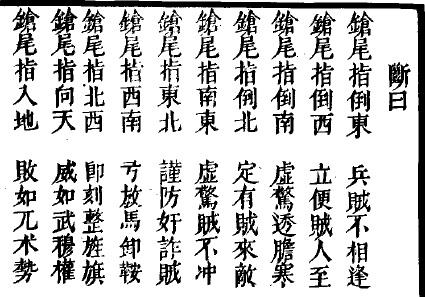 斷曰
鎗尾指倒東 兵賊不相逢
鎗尾指倒西 立便賊人至
鎗尾指倒南 虛驚透膽寒
鎗尾指倒北 定有賊來敵
鎗尾指南東 虛驚賊不冲
鎗尾指東北 謹防奸詐賊
鎗尾指西南 亏放馬卸鞍
鎗尾指北西 即刻整旌旗
鎗尾指向天 威如武穆權
鎗尾指入地 敗如兀术勢